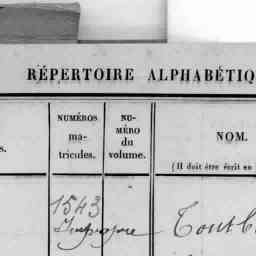 RÉPERTOIRE ALPHABÉTIQ
NUMÉROS
ma-
tricules.
NU-
MÉRO
du
volume.
NOM.
(Il doit être écrit en
s.
1543